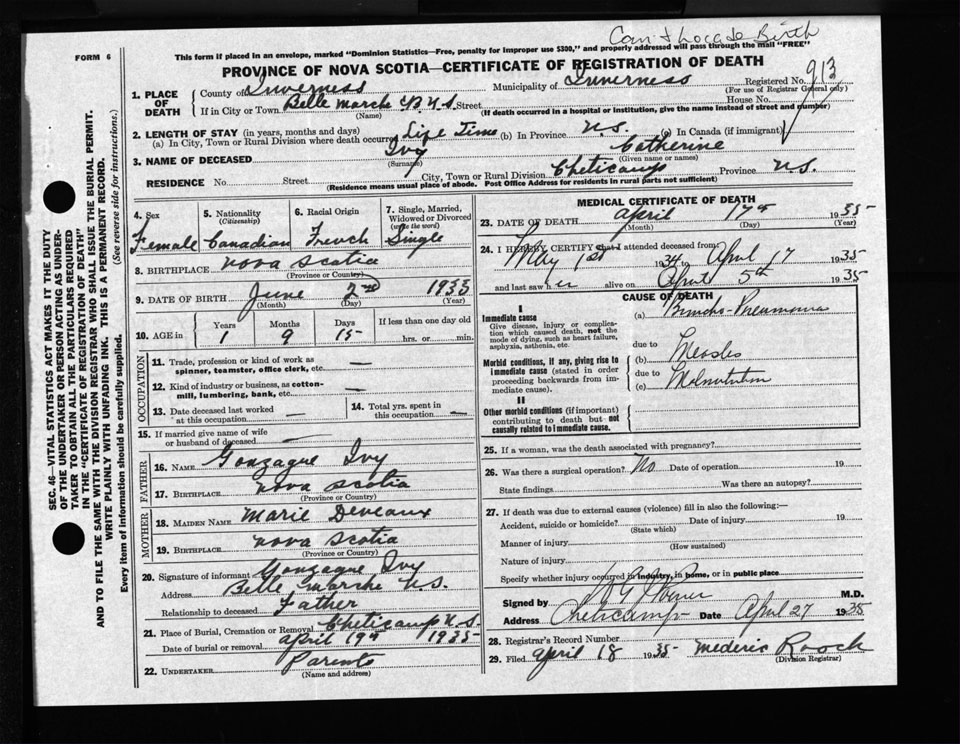 Can't locate Birth
FORM 6
This form if placed in an envelope, marked "Dominion Statistics—Free, penalty for improper use $300," and properly addressed will pass through the mail "FREE"
PROVINCE OF NOVA SCOTIA—CERTIFICATE OF REGISTRATION OF DEATH
1. PLACE OF DEATH
County of Inverness Municipality of Inverness Registered No. 913
(For use of Registrar General only)
If in City or Town Belle Marche CB N.S. Street House No.
(Name) (If death occurred in a hospital or institution, give the name instead of street and number)
2. LENGTH OF STAY (in years, months and days)
(a) In City, Town or Rural Division where death occurred Life Time (b) In Province N.S. (c) In Canada (if immigrant)
3. NAME OF DECEASED Ivy Catherine
(Surname) (Given name or names)
RESIDENCE No. Street City, Town or Rural Division Cheticamp Province N.S.
(Residence means usual place of abode. Post Office Address for residents in rural parts not sufficient)
4. Sex Female
5. Nationality (Citizenship) Canadian
6. Racial Origin French
7. Single, Married, Widowed or Divorced (write the word) Single
8. BIRTHPLACE Nova Scotia
(Province or Country)
9. DATE OF BIRTH June 2nd 1933
(Month) (Day) (Year)
10. AGE in Years 1 Months 9 Days 15 If less than one day old hrs. or min.
OCCUPATION
11. Trade, profession or kind of work as spinner, teamster, office clerk, etc. —
12. Kind of industry or business, as cotton-mill, lumbering, bank, etc. —
13. Date deceased last worked at this occupation —
14. Total yrs. spent in this occupation —
15. If married give name of wife or husband of deceased —
FATHER
16. NAME Gonzague Ivy
17. BIRTHPLACE Nova Scotia
(Province or Country)
MOTHER
18. MAIDEN NAME Marie Deveaux
19. BIRTHPLACE Nova Scotia
(Province or Country)
20. Signature of informant Gonzague Ivy
Address Belle Marche N.S.
Relationship to deceased Father
21. Place of Burial, Cremation or Removal Cheticamp N.S.
Date of burial or removal April 19th 1935
22. UNDERTAKER Parents
(Name and address)
MEDICAL CERTIFICATE OF DEATH
23. DATE OF DEATH April 17th 1935
(Month) (Day) (Year)
24. I HEREBY CERTIFY that I attended deceased from
May 1st 1934 to April 17 1935
and last saw er alive on April 5th 1935
CAUSE OF DEATH
I
Immediate cause
Give disease, injury or complication which caused death, not the mode of dying, such as heart failure, asphyxia, asthenia, etc.
(a) Broncho-Pneumonia
due to
Morbid conditions, if any, giving rise to immediate cause (stated in order proceeding backwards from immediate cause).
(b) Measles
due to
(c) Malnutrition
II
Other morbid conditions (if important) contributing to death but not causally related to immediate cause.
25. If a woman, was the death associated with pregnancy?
26. Was there a surgical operation? No Date of operation 19
State findings Was there an autopsy?
27. If death was due to external causes (violence) fill in also the following:—
Accident, suicide or homicide? Date of injury 19
(State which)
Manner of injury
(How sustained)
Nature of injury
Specify whether injury occurred in industry, in home, or in public place
Signed by M.D.
Address Cheticamp Date April 27 1935
28. Registrar's Record Number
29. Filed April 18 1935 Mederic Roach
(Division Registrar)
SEC. 46—VITAL STATISTICS ACT MAKES IT THE DUTY
OF THE UNDERTAKER OR PERSON ACTING AS UNDER-
TAKER TO OBTAIN ALL THE PARTICULARS REQUIRED
IN THE "CERTIFICATE OF REGISTRATION OF DEATH"
AND TO FILE THE SAME WITH THE DIVISION REGISTRAR WHO SHALL ISSUE THE BURIAL PERMIT.
WRITE PLAINLY WITH UNFADING INK. THIS IS A PERMANENT RECORD.
Every item of information should be carefully supplied. (See reverse side for instructions.)